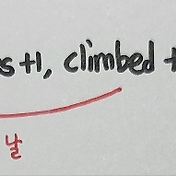 s +1, climbed +
날